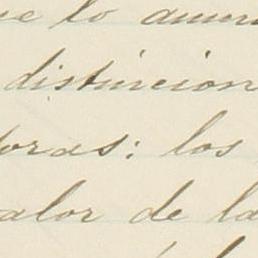 ue lo
distincion
oras: los
alor de la